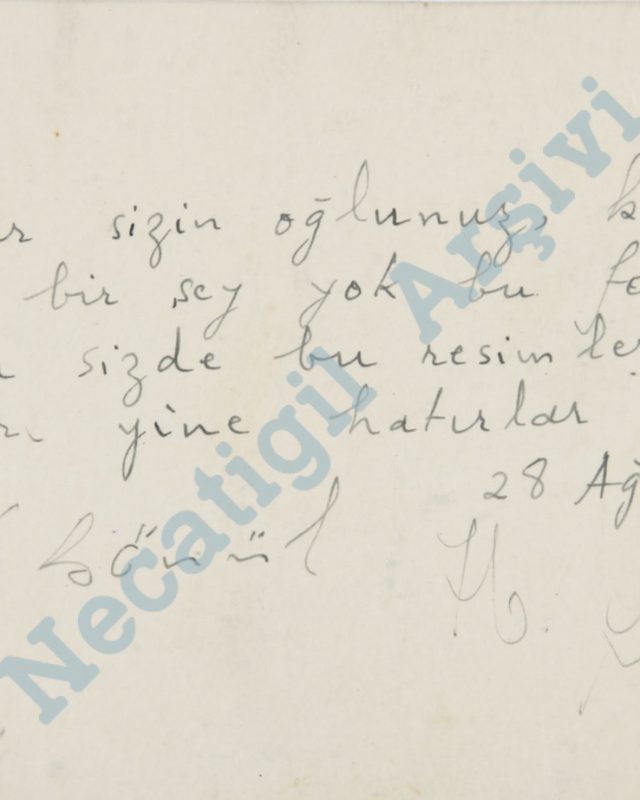 sizin oğlunuz,
bir şey yok bu
sizde bu resimler
yine hatırlar
28 Ağ
Gönül H.
Necatigil Arşivi